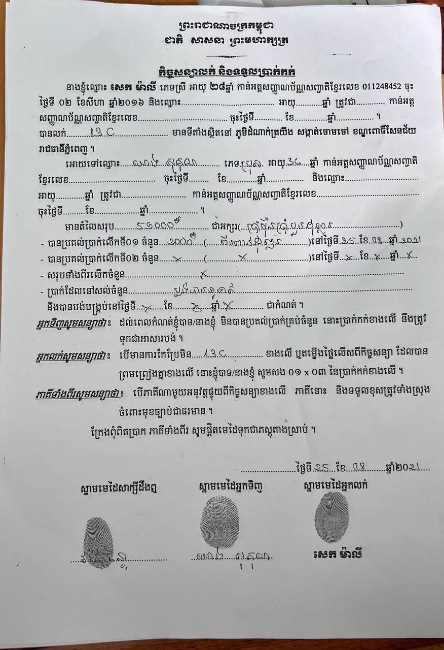 ព្រះរាជាណាចក្រកម្ពុជា
ជាតិ សាសនា ព្រះមហាក្សត្រ
កិច្ចសន្យាលក់ និងទទួលប្រាក់កក់
នាងខ្ញុំឈ្មោះ សេក ម៉ាលី ភេទស្រី អាយុ ២៨ឆ្នាំ កាន់អត្តសញ្ញាណប័ណ្ណសញ្ជាតិខ្មែរលេខ 011248452 ចុះ
ថ្ងៃទី ០២ ខែសីហា ឆ្នាំ២០១៦ និងឈ្មោះ................អាយុ........ឆ្នាំ ត្រូវជា ............ កាន់អត្ត
សញ្ញាណប័ណ្ណសញ្ជាតិខ្មែរលេខ................ចុះថ្ងៃទី........ខែ........ឆ្នាំ............។
បានលក់ 13C មានទីតាំងស្ថិតនៅ ភូមិដំណាក់ត្រយឹង សង្កាត់ចោមចៅ ខណ្ឌពោធិ៍សែនជ័យ
រាជធានីភ្នំពេញ ។
អោយទៅឈ្មោះ ភេទ ប្រុស អាយុ 36 ឆ្នាំ កាន់អត្តសញ្ញាណប័ណ្ណសញ្ជាតិ
ខ្មែរលេខ................ចុះថ្ងៃទី........ខែ........ឆ្នាំ........និងឈ្មោះ................
អាយុ........ឆ្នាំ ត្រូវជា ............ កាន់អត្តសញ្ញាណប័ណ្ណសញ្ជាតិខ្មែរលេខ................
ចុះថ្ងៃទី........ខែ........ឆ្នាំ............។
មានតម្លៃសរុប ជាអក្សរ( )
- បានប្រគល់ប្រាក់លើកទី០១ ចំនួន 2000$ ( )នៅថ្ងៃទី 25 ខែ 08 ឆ្នាំ 2021
- បានប្រគល់ប្រាក់លើកទី០២ ចំនួន x ( x )នៅថ្ងៃទី x ខែ x ឆ្នាំ x
- សរុបទាំងពីរលើកចំនួន x
- ប្រាក់ដែលនៅសល់ចំនួន
នឹងបានបង់បង្គ្រប់នៅថ្ងៃទី x ខែ x ឆ្នាំ x ជាកំណត់ ។
អ្នកទិញសូមសន្យាថា៖ ដល់ពេលកំណត់ខ្ញុំបាទ/នាងខ្ញុំ មិនបានប្រគល់ប្រាក់គ្រប់ចំនួន នោះប្រាក់កក់ខាងលើ នឹងត្រូវ
ទុកជាអសារបង់ ។
អ្នកលក់សូមសន្យាថា៖ បើមានការកែប្រែមិន 13C ខាងលើ ឬតម្លើងថ្លៃលើសពីកិច្ចសន្យា ដែលបាន
ព្រមព្រៀងគ្នាខាងលើ នោះខ្ញុំបាទ/នាងខ្ញុំ សូមសង 01 x 03 នៃប្រាក់កក់ខាងលើ ។
ភាគីទាំងពីរសូមសន្យាថា៖ បើភាគីណាមួយអនុវត្តផ្ទុយពីកិច្ចសន្យាខាងលើ ភាគីនោះ និងទទួលខុសត្រូវទាំងស្រុង
ចំពោះមុខច្បាប់ជាធរមាន ។
ក្រែងពុំពិតប្រាកដ ភាគីទាំងពីរ សូមផ្តិតមេដៃទុកជាភស្តុតាងស្រាប់ ។
ថ្ងៃទី 25 ខែ 08 ឆ្នាំ 2021
ស្នាមមេដៃសាក្សីដឹងឮ ស្នាមមេដៃអ្នកទិញ ស្នាមមេដៃអ្នកលក់
សេក ម៉ាលី